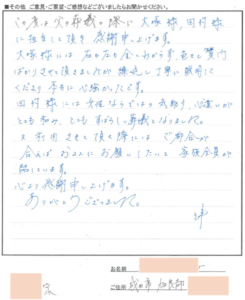 ■その他 ご意見・ご要望・ご感想などございましたらお聞かせください。
この度は父の葬儀の際に大塚様、田村様
に担当して頂き感謝申し上げます。
大塚様には右も左も全くわからず、色々質問
ばかりさせて頂きましたが、丁寧に説明して
くださり本当に心強かったです。
田村様には女性ならではの気配り、心遣いが
とても和み、とてもすばらしい葬儀となりました。
又利用させて頂く際にはご都合が
合えばお2人にお願いしたいと家族全員が
話しています。
心より感謝申し上げます。
ありがとうございました。
お名前
家
ご住所
成田市